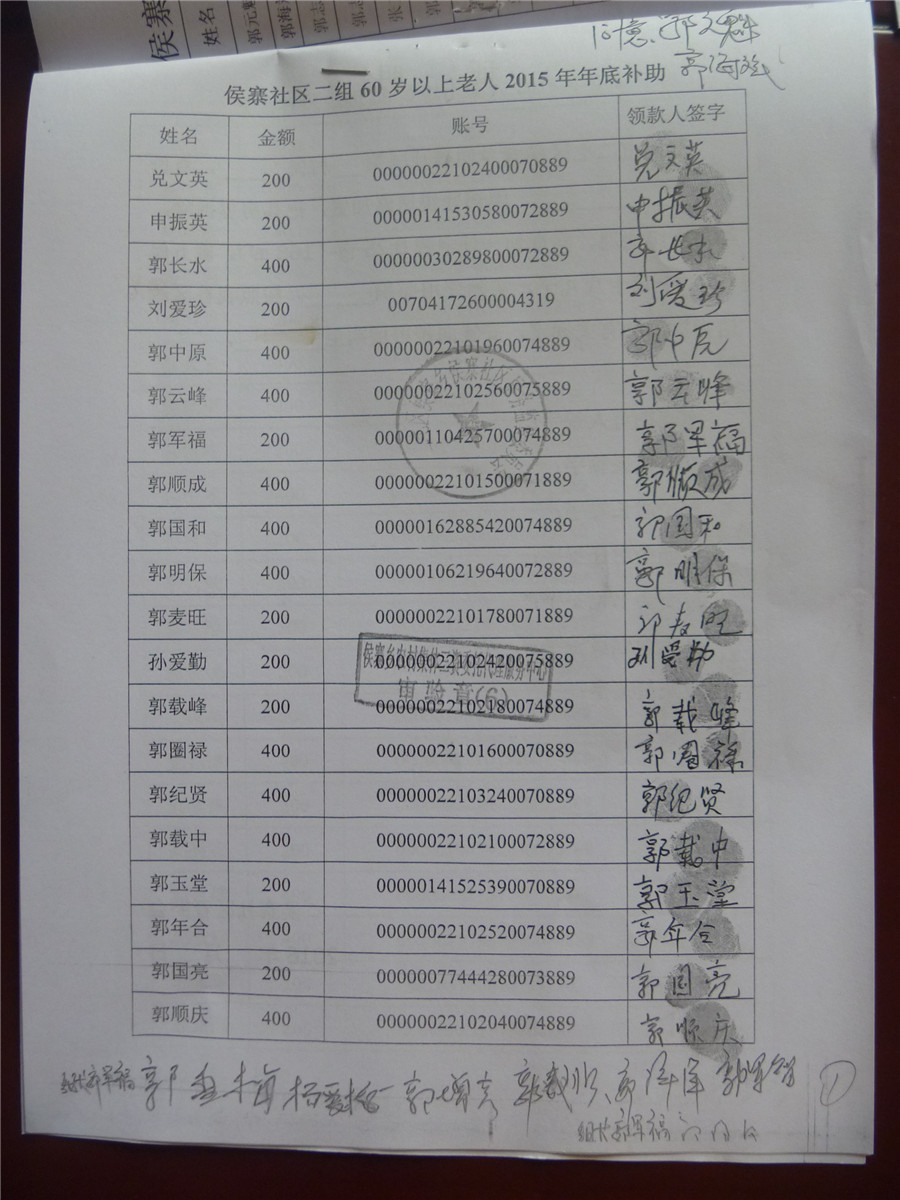 侯寨
姓名
郭海
同意
侯寨社区二组 60 岁以上老人 2015 年年底补助
姓名 金额 账号 领款人签字
兑文英 200 00000022102400070889 兑文英
申振英 200 00000141530580072889 申振英
郭长水 400 00000030289800072889 郭长水
刘爱珍 200 00704172600004319 刘爱珍
郭中原 400 00000022101960074889 郭中原
郭云峰 400 00000022102560075889 郭云峰
郭军福 200 00000110425700074889 郭军福
郭顺成 400 00000022101500071889 郭顺成
郭国和 400 00000162885420074889 郭国和
郭明保 400 00000106219640072889 郭明保
郭麦旺 200 00000022101780071889 郭麦旺
孙爱勤 200 00000022102420075889 孙爱勤
侯寨乡农村集体三资委托代理服务中心
审验章(6)
郭载峰 200 00000022102180074889 郭载峰
郭圈禄 400 00000022101600070889 郭圈禄
郭纪贤 400 00000022103240070889 郭纪贤
郭载中 400 00000022102100072889 郭载中
郭玉堂 200 00000141525390070889 郭玉堂
郭年合 400 00000022102520074889 郭年合
郭国亮 200 00000077444280073889 郭国亮
郭顺庆 400 00000022102040074889 郭顺庆
1